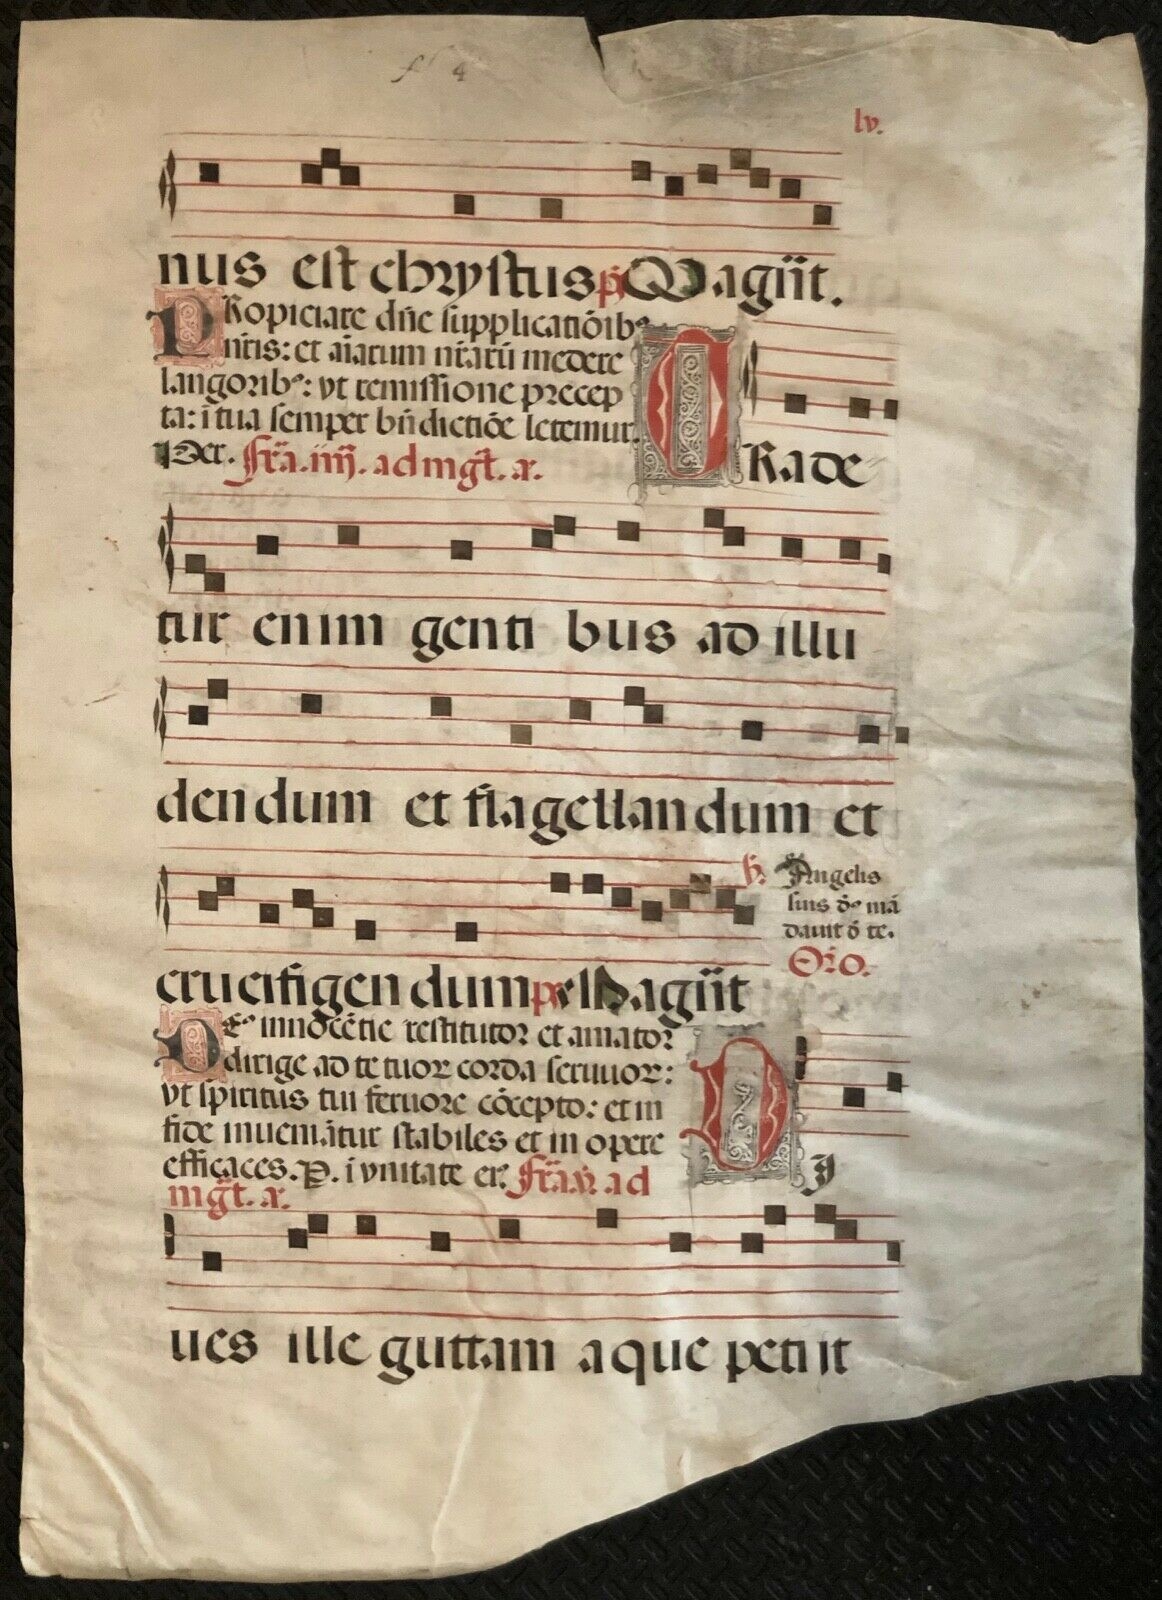 f 4
lv.
nus est chrystus ps Magñt.
PRopiciare dñe supplicatiõib⁹
nr̃is: et aĩarum nr̃arũ medere
langorib⁹: vt remissione precep
ta: ĩ tua semper bñdictiõe letemur.
Per. Fr̃a. iiij. ad mgt̃. a.
TRade
tur enim genti bus ad illu
den dum et flagellan dum et
crucifigen dum ps Magñt
Angelis
suis d⁹ mã
dauit d̃ te.
Oro.
De⁹ innocẽtie restitutor et amator
dirige ad te tuoꝝ corda seruuoꝝ:
vt spiritus tui feruore cõcepto: et in
fide inueniãtur stabiles et in opere
efficaces. P. ĩ vnitate eꝛ. Fr̃a. v. ad
mgt̃. a.
DI
ues ille guttam aque petiit